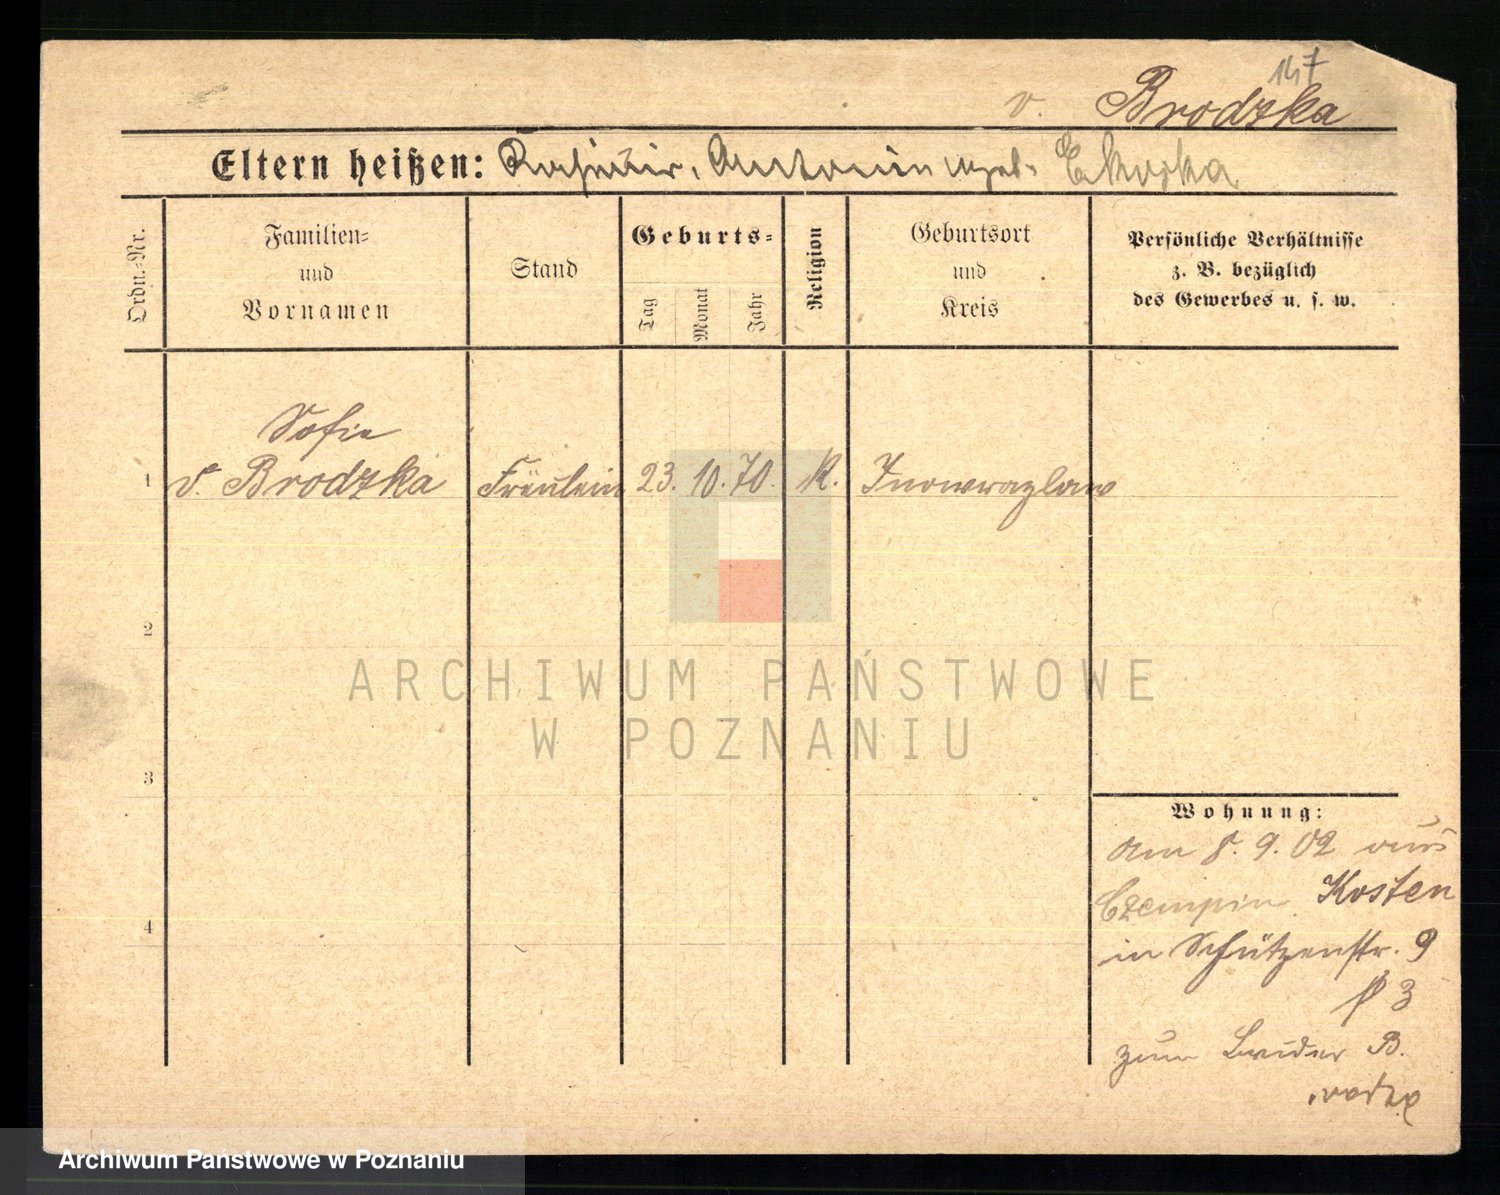 147
v. Brodzka
Eltern heißen: Kasimir, Antonin geb.
Ordn.-Nr.
Familien-
und
Vornamen
Stand
Geburts-
Tag
Monat
Jahr
Religion
Geburtsort
und
Kreis
Persönliche Verhältnisse
z. B. bezüglich
des Gewerbes u. s. w.
Sofie
1 v. Brodzka Fräulein 23. 10. 70. K. Inowrazlaw
2
3
4
Wohnung:
am 8. 9. 02 aus
Czempin Kosten
in Schützenstr. 9
3
zum Bruder B.
ARCHIWUM PAŃSTWOWE
W POZNANIU
Archiwum Państwowe w Poznaniu